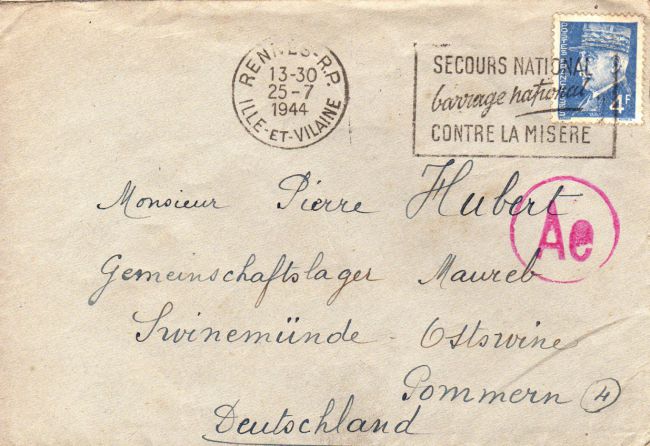 RENNES-R.P.
13-30
25-7
1944
ILLE-ET-VILAINE
SECOURS NATIONAL
barrage national
CONTRE LA MISÈRE
4F
Monsieur Pierre Hubert
Ae
Gemeinschaftslager Maureb
Swinemünde - Ostswine
Pommern (4)
Deutschland